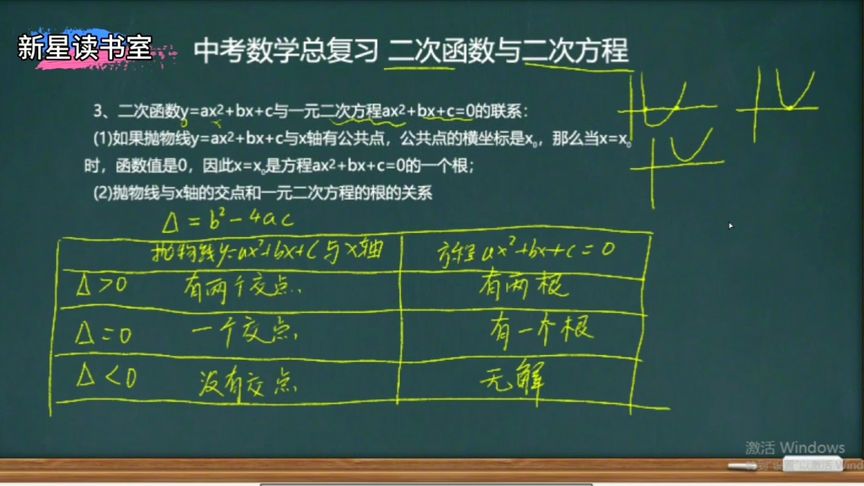 新星读书室
中考数学总复习 二次函数与二次方程
3、二次函数y=ax²+bx+c与一元二次方程ax²+bx+c=0的联系：
(1)如果抛物线y=ax²+bx+c与x轴有公共点，公共点的横坐标是x₀，那么当x=x₀
时，函数值是0，因此x=x₀是方程ax²+bx+c=0的一个根；
(2)抛物线与x轴的交点和一元二次方程的根的关系
Δ=b²-4ac
抛物线y=ax²+bx+c与x轴 方程ax²+bx+c=0
Δ>0 有两个交点. 有两根
Δ=0 一个交点. 有一个根
Δ<0 没有交点 无解
激活 Windows